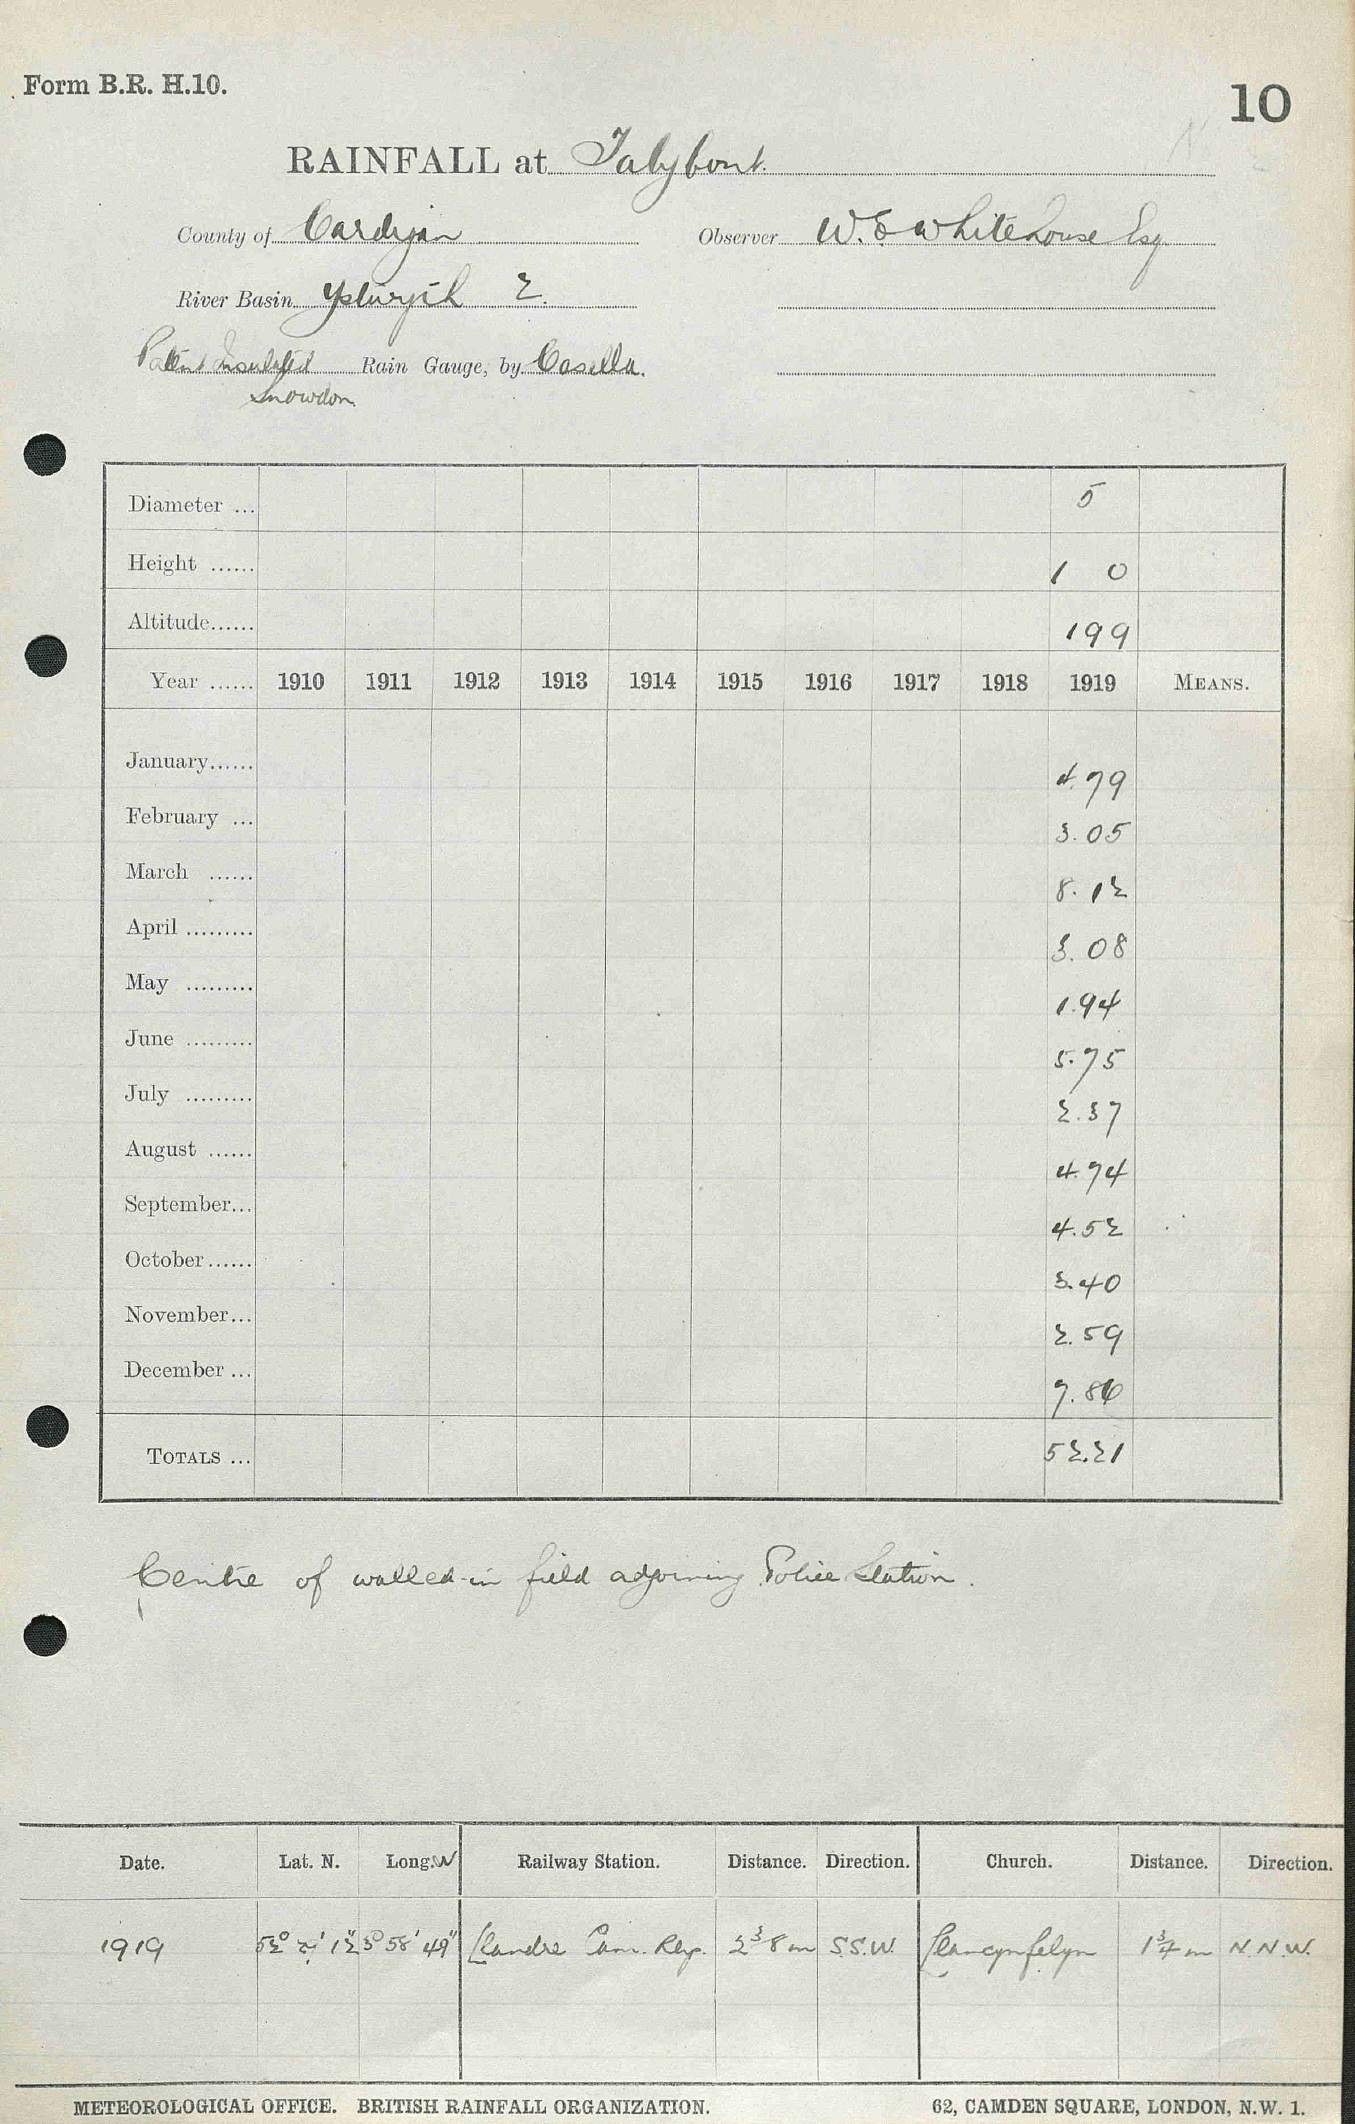 Form B.R. H.10.
10
RAINFALL at Talybont.
County of Cardigan Observer W. E Whitehouse Esq
River Basin Ystwyth 2.
Patent Insulated Rain Gauge, by Casella.
Snowdon
Diameter ... 5
Height ...... 1 0
Altitude...... 199
Year ...... 1910 1911 1912 1913 1914 1915 1916 1917 1918 1919 MEANS.
January...... 4.79
February ... 3.05
March ...... 8.12
April ......... 3.08
May ......... 1.94
June ......... 5.75
July ......... 2.37
August ...... 4.74
September... 4.52
October...... 3.40
November... 2.59
December ... 7.86
TOTALS ... 52.21
Centre of walled-in field adjoining Police Station.
Date. Lat. N. Long. W Railway Station. Distance. Direction. Church. Distance. Direction.
1919 52° 12" 3° 58' 49" Llandre Cam. Rly. 2 3/8 m S.S.W. Llancynfelyn 1 3/4 m N.N.W.
METEOROLOGICAL OFFICE. BRITISH RAINFALL ORGANIZATION. 62, CAMDEN SQUARE, LONDON, N.W. 1.